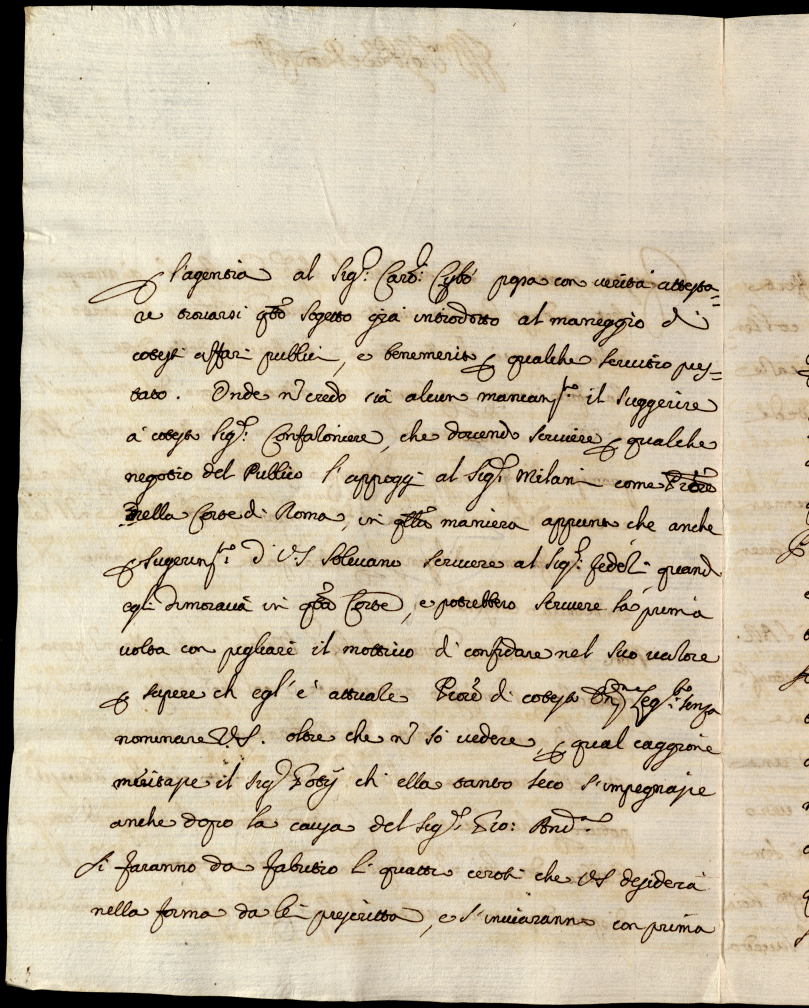 l'agentia al Sig.r Card: Cybò possa con verità attesta=
re trovarsi q.to sogetto già introdotto al maneggio di
cotesti affari publici, e benemerito p qualche servitio pres=
tato. Onde n credo sia alcun mancam.to il suggerire
à cotesto Sig.r Confaloniere, che dovendo scrivere p qualche
negotio del Publico s'appoggi al Sig.r Milani come
nella Corte di Roma, in q.lla maniera appunto che anche
p sugerim.to di V.S. solevano scrivere al Sig.r Fedeli quando
egli dimorava in q.ta Corte, e potrebbero scrivere la prima
volta con pigliare il mottivo di confidare nel suo valore
p sapere ch egl' è attuale di cotesta senza
nominare V.S. oltre che n sò vedere, p qual caggione
meritasse il Sig.r ch ella tanto seco s'impegnasse
anche dopo la causa del Sig.r Gio: And.a
Si faranno da Fabritio li quattro ceroti che VS desidera
nella forma da lei prescritta, e s'inviaranno con prima